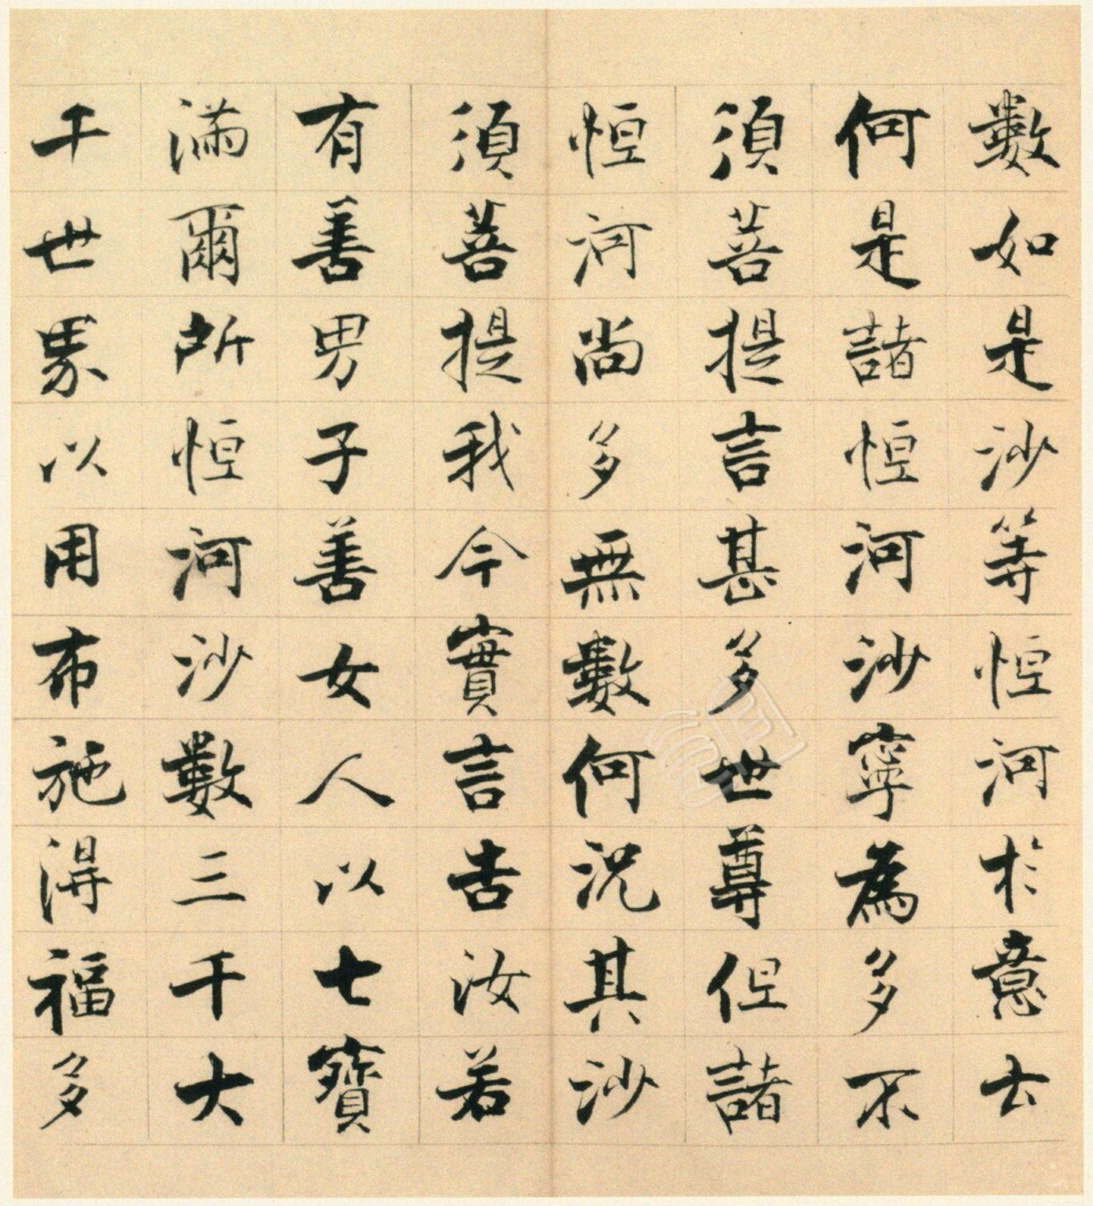 數如是沙等恒河於意云
何是諸恒河沙寧為多不
須菩提言甚多世尊但諸
恒河尚多無數何況其沙
須菩提我今實言告汝若
有善男子善女人以七寶
滿爾所恒河沙數三千大
千世界以用布施得福多